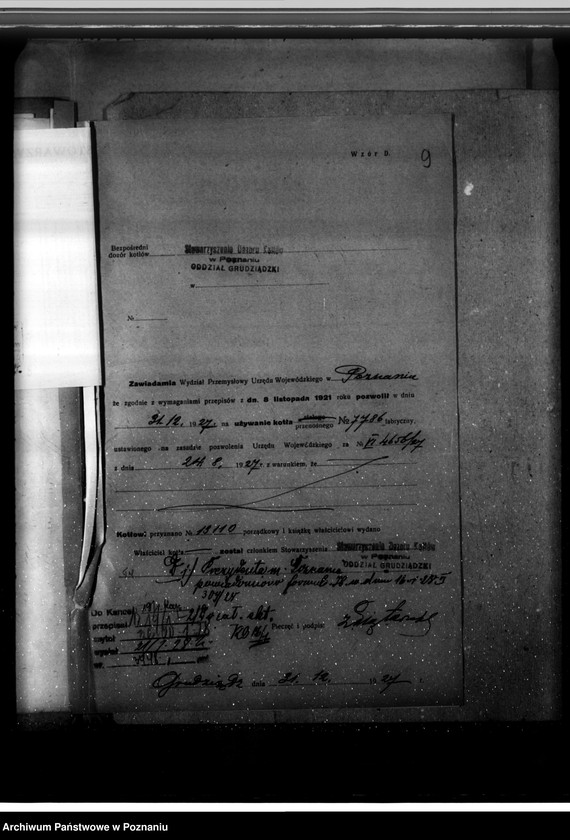 Wzór D.
9
Bezpośredni
dozór kotłów
Stowarzyszenie Dozoru Kotłów
w Poznaniu
ODDZIAŁ GRUDZIĄDZKI
w
№
Zawiadamia Wydział Przemysłowy Urzędu Wojewódzkiego w Poznaniu
że zgodnie z wymaganiami przepisów z dn. 8 listopada 1921 roku pozwolił w dniu
31.12. 1927 r. na używanie kotła przenośnego № 7786 fabryczny,
ustawionego na zasadzie pozwolenia Urzędu Wojewódzkiego za № VI 4656/27
z dnia 24.8. 1927 r. z warunkiem, że
Kotłowi przyznano № 13110 porządkowy i książkę właścicielowi wydano
Właściciel kotła został członkiem Stowarzyszenia Stowarzyszenie Dozoru Kotłów
w Poznaniu
ODDZIAŁ GRUDZIĄDZKI
Prezydenta m. Poznania
Do Kancel.
przepisał
czytał
wysłał
Pieczęć i podpis
Grudziądz dnia 31. 12. 1927 r.
Archiwum Państwowe w Poznaniu